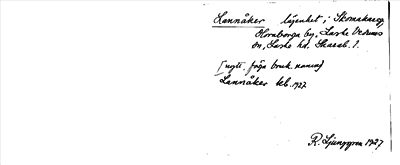 Lannåker lägenhet, i Skomakareg.
Hornborga by, Laske Vedums
sn, Laske hd. Skarab. l.
[nytt. från bruk. namn]
Lannåker kb. 1927
R. Ljunggren 1927